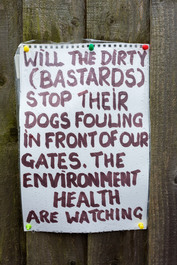 WILL THE DIRTY
(BASTARDS)
STOP THEIR
DOGS FOULING
IN FRONT OF OUR
GATES. THE
ENVIRONMENT
HEALTH
ARE WATCHING